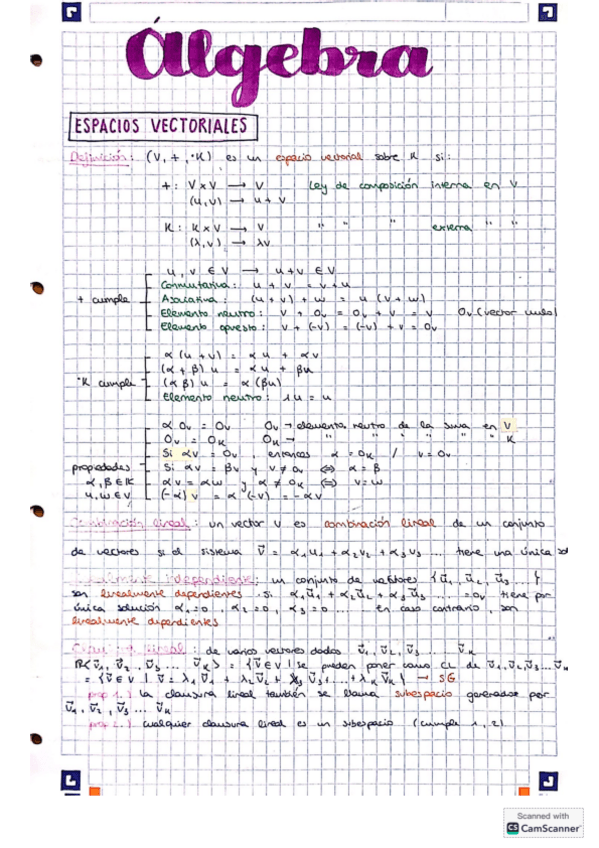 Álgebra
ESPACIOS VECTORIALES
Definición: (V, +, ·K) es un espacio vectorial sobre K si:
+: V x V → V Ley de composición interna en V
(u,v) → u + v
K: K x V → V " " " externa " "
(λ,v) → λv
u, v ∈ V → u + v ∈ V
Conmutativa: u + v = v + u
+ cumple Asociativa: (u + v) + w = u (v + w)
Elemento neutro: V + Ov = Ov + v = V Ov (vector nulo)
Elemento opuesto: v + (-v) = (-v) + v = Ov
α (u + v) = αu + αv
(α + β) u = αu + βu
·K cumple (αβ) u = α (βu)
Elemento neutro: 1u = u
α Ov = Ov Ov → elemento neutro de la suma en V
Ov = Ok Ok → " " " " " K
Si αv = Ov, entonces α = Ok / v = Ov
propiedades Si αv = βv y v ≠ Ov ⇔ α = β
α, β ∈ K αv = αw y α ≠ Ok ⇔ v = w
u, w ∈ V (-α) v = α (-v) = -αv
Combinación lineal: un vector v es combinación lineal de un conjunto
de vectores si el sistema v⃗ = α₁u₁ + α₂v₂ + α₃v₃ ... tiene una única
independiente: un conjunto de {u⃗₁, u⃗₂, u⃗₃ ... }
son linealmente dependientes si α₁u⃗₁ + α₂u⃗₂ + α₃u⃗₃ ... = ov tiene por
única solución α₁=0, α₂=0, α₃=0 ... En caso contrario, son
linealmente dependientes
lineal: de varios vectores dados v⃗₁, v⃗₂, v⃗₃ ... v⃗k
R{v⃗₁, v⃗₂, v⃗₃ ... v⃗k} = {v⃗∈V | se pueden poner como CL de v⃗₁, v⃗₂, v⃗₃ ... v⃗k
= {v⃗∈V | v⃗ = λ₁v⃗₁ + λ₂v⃗₂ + λ₃v⃗₃ + ... + λkv⃗k} → SG
prop 1.) la clausura lineal también se llama subespacio generados por
v⃗₁, v⃗₂, v⃗₃ ... v⃗k
prop 2.) cualquier clausura lineal es un subespacio (cumple 1, 2)
Scanned with
CS CamScanner